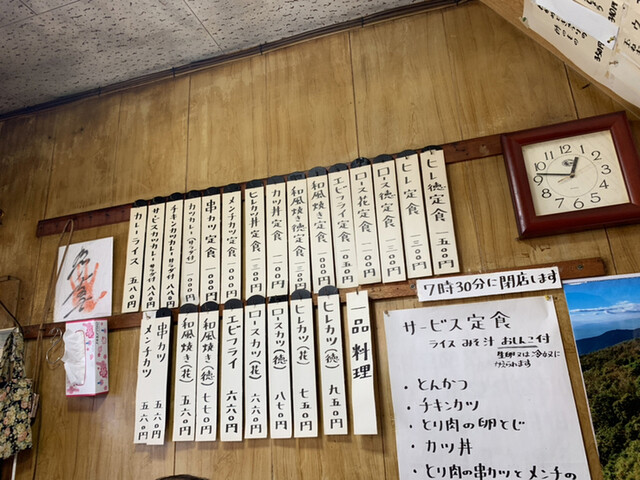 ヒレ徳定食 一五〇〇円
ヒレ定食 一三〇〇円
ロース徳定食 一三〇〇円
ロース花定食 一一〇〇円
エビフライ定食 一〇五〇円
和風焼き定食 一〇〇〇円
和風焼き徳定食 一三〇〇円
カツ丼定食 一一〇〇円
ヒレカツ丼定食 一二〇〇円
メンチカツ定食 一〇〇〇円
串カツ定食 一〇〇〇円
カツカレー(サラダ付) 一〇〇〇円
チキンカツカレー(サラダ付) 八八〇円
サービスカツカレー(サラダ付) 八八〇円
カレーライス 五八〇円
一品料理
ヒレカツ(徳) 九五〇円
ヒレカツ(花) 七五〇円
ロースカツ(徳) 八七〇円
ロースカツ(花) 六六〇円
エビフライ 六六〇円
和風焼き(徳) 七七〇円
和風焼き(花) 五六〇円
串カツ 五六〇円
メンチカツ 五六〇円
12
1
2
3
4
5
6
7
8
9
10
11
7時30分に閉店します
サービス定食
ライス みそ汁 おしんこ付
生卵又は冷奴に
かえられます
・とんかつ
・チキンカツ
・とり肉の卵とじ
・カツ丼
・とり肉の串カツとメンチの
350円